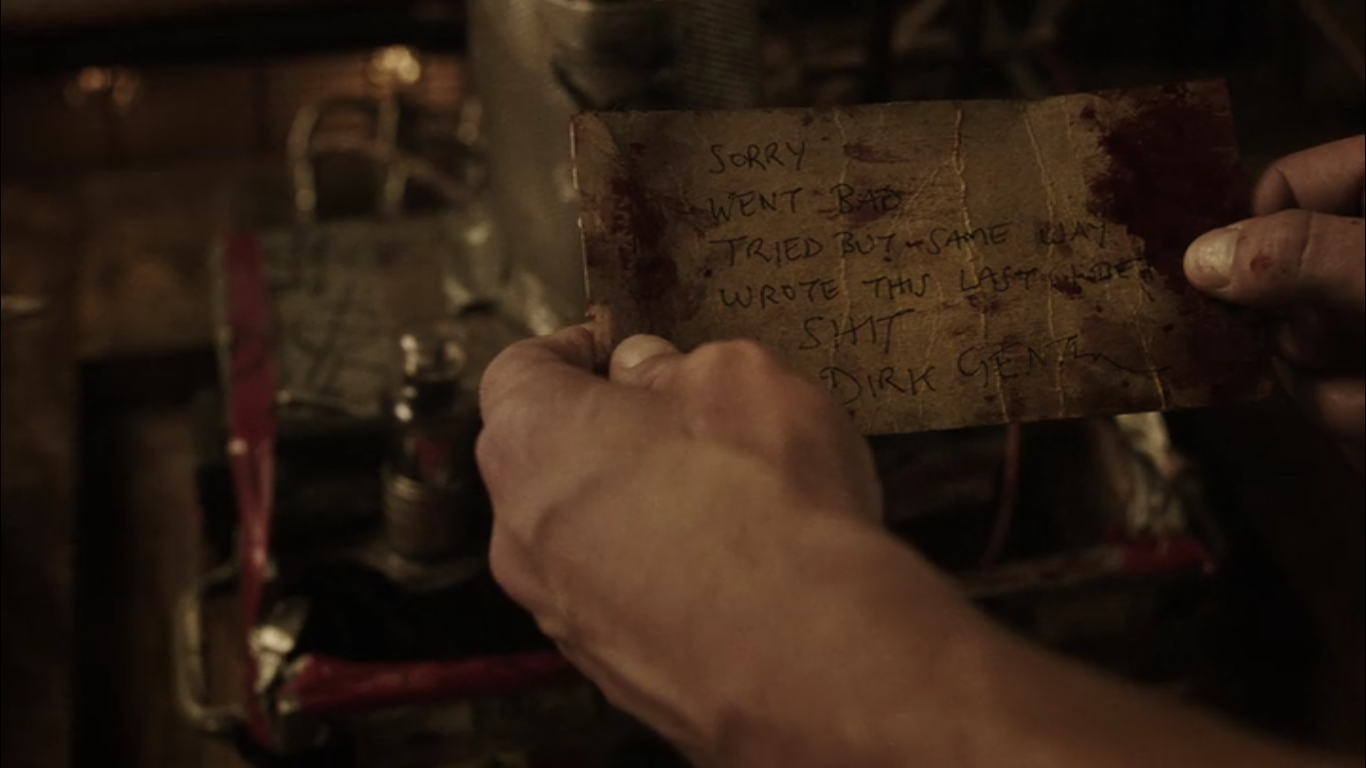 SORRY
WENT BAD
TRIED BUT SAME WAY
WROTE THIS LAST
SHIT
DIRK